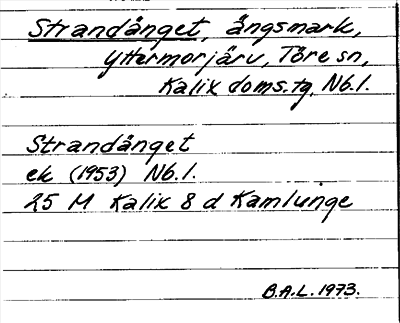 Strandänget, ängsmark,
Yttermorjärv, Töre sn,
Kalix doms.tg, Nb.l.
Strandänget
ek (1953) Nb.l.
25 M Kalix 8 d Kamlunge
B.A.L. 1973.